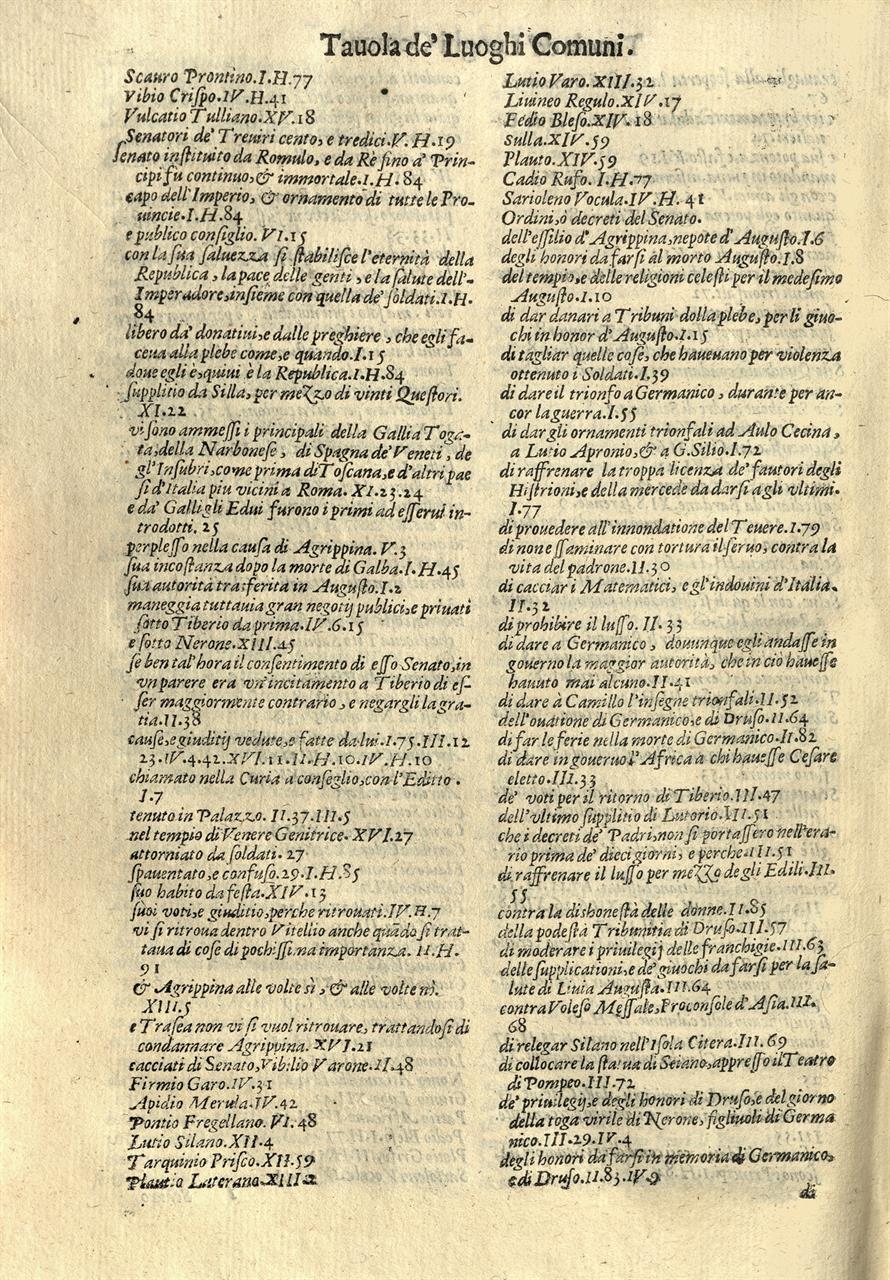 Tauola de' Luoghi Comuni.
Scauro Prontino.I.H.77
Vibio Criſpo.IV.H.41
Vulcatio Tulliano.XV.18
Senatori de' Treuiri cento, e tredici.V.H.19
Senato inſtituito da Romulo, e da Rè ſino a' Prin-
cipi fu continuo, & immortale.I.H.84
capo dell'Imperio, & ornamento di tutte le Pro-
uincie.I.H.84
e publico conſiglio. VI.15
con la ſua ſaluezza ſi ſtabiliſce l'eternità della
Republica, la pace delle genti, e la ſalute dell'-
Imperadore, inſieme con quella de' ſoldati.I.H.
84
libero da' donatiui, e dalle preghiere, che egli fa-
ceua alla plebe come, e quando.I.15
doue egli è, quiui è la Republica.I.H.84
ſupplito da Silla, per mezzo di vinti Queſtori.
XI.22
vi ſono ammeſſi i principali della Gallia Toga-
ta, della Narboneſe, di Spagna de' Veneti, de
gl'Inſubri, come prima di Toſcana, e d'altri pae
ſi d'Italia piu vicini a Roma. XI.23.24
e da' Galli gli Edui furono i primi ad eſſerui in-
trodotti. 25
perpleſſo nella cauſa di Agrippina. V.3
ſua incoſtanza dopo la morte di Galba.I.H.45
ſua autorità trasferita in Auguſto.I.2
maneggia tuttauia gran negotij publici, e priuati
ſotto Tiberio da prima.IV.6.15
e ſotto Nerone.XIII.45
ſe ben tal'hora il conſentimento di eſſo Senato, in
vn parere era vn'incitamento a Tiberio di eſ-
ſer maggiormente contrario, e negargli la gra-
tia.II.38
cauſe, e giuditij vedute, e fatte da lui.I.75.III.12
23.IV.4.42.XVI.11.II.H.10.IV.H.10
chiamato nella Curia a conſeglio, con l'Editto.
I.7
tenuto in Palazzo. II.37.III.5
nel tempio di Venere Genitrice. XVI.27
attorniato da ſoldati. 27
ſpauentato, e confuſo.29.I.H.85
ſuo habito da feſta.XIV.13
ſuoi voti, e giuditio, perche ritrouati.IV.H.7
vi ſi ritroua dentro Vitellio anche quãdo ſi trat-
taua di coſe di pochiſſima importanza. II.H.
91
& Agrippina alle volte sì, & alle volte nò.
XIII.5
e Traſea non vi ſi vuol ritrouare, trattandoſi di
condannare Agrippina. XVI.21
cacciati di Senato, Vibilio Varone.II.48
Firmio Garo.IV.31
Apidio Merula.IV.42
Pontio Fregellano. VI.48
Lutio Silano.XII.4
Tarquinio Priſco.XII.59
Plautio Laterano.XIII.2
Lutio Varo. XIII.32
Liuineo Regulo.XIV.17
Fedio Bleſo.XIV.18
Sulla.XIV.59
Plauto.XIV.59
Cadio Rufo. I.H.77
Sarioleno Vocula.IV.H. 41
Ordini, ò decreti del Senato.
dell'eſſilio d'Agrippina, nepote d'Auguſto.I.6
degli honori da farſi al morto Auguſto.I.8
del tempio, e delle religioni celeſti per il medeſimo
Auguſto.I.10
di dar danari a Tribuni dolla plebe, per li giuo-
chi in honor d'Auguſto.I.15
di tagliar quelle coſe, che haueuano per violenza
ottenuto i Soldati.I.39
di dare il trionfo a Germanico, durante per an-
cor la guerra.I.55
di dar gli ornamenti trionfali ad Aulo Cecina,
a Lutio Apronio, & a G.Silio.I.72
di raffrenare la troppa licenza de' fautori degli
Hiſtrioni, e della mercede da darſi agli vltimi.
I.77
di prouedere all'innondatione del Teuere.I.79
di non eſſaminare con tortura il ſeruo, contra la
vita del padrone.II.30
di cacciar i Matematici, e gl'indouini d'Italia.
II.32
di prohibire il luſſo. II. 33
di dare a Germanico, douunque egli andaſſe in
gouerno la maggior autorità, che in ciò haueſſe
hauuto mai alcuno.II.41
di dare a Camillo l'inſegne trionfali.II.52
dell'ouatione di Germanico, e di Druſo.II.64
di far le ferie nella morte di Germanico.II.82
di dare in gouerno l'Africa a chi haueſſe Ceſare
eletto.III.33
de' voti per il ritorno di Tiberio.III.47
dell'vltimo ſupplitio di Lutorio.III.51
che i decreti de' Padri, non ſi portaſſero nell'era-
rio prima de' dieci giorni, e perche.III.51
di raffrenare il luſſo per mezzo degli Edili.III.
55
contra la dishoneſtà delle donne.II.85
della podeſtà Tribunitia di Druſo.III.57
di moderare i priuilegij delle franchigie.III.63
delle ſupplicationi, e de' giuochi da farſi per la ſa-
lute di Liuia Auguſta.III.64
contra Voleſo Meſſale, Proconſole d'Aſia.III.
68
di relegar Silano nell'Iſola Citera.III.69
di collocare la ſtatua di Seiano, appreſſo il Teatro
di Pompeo.III.72
de' priuilegij, e degli honori di Druſo, e del giorno
della toga virile di Nerone, figliuoli di Germa
nico.III.29.IV.4
degli honori da farſi in memoria di Germanico,
e di Druſo.II.83.IV.9
di